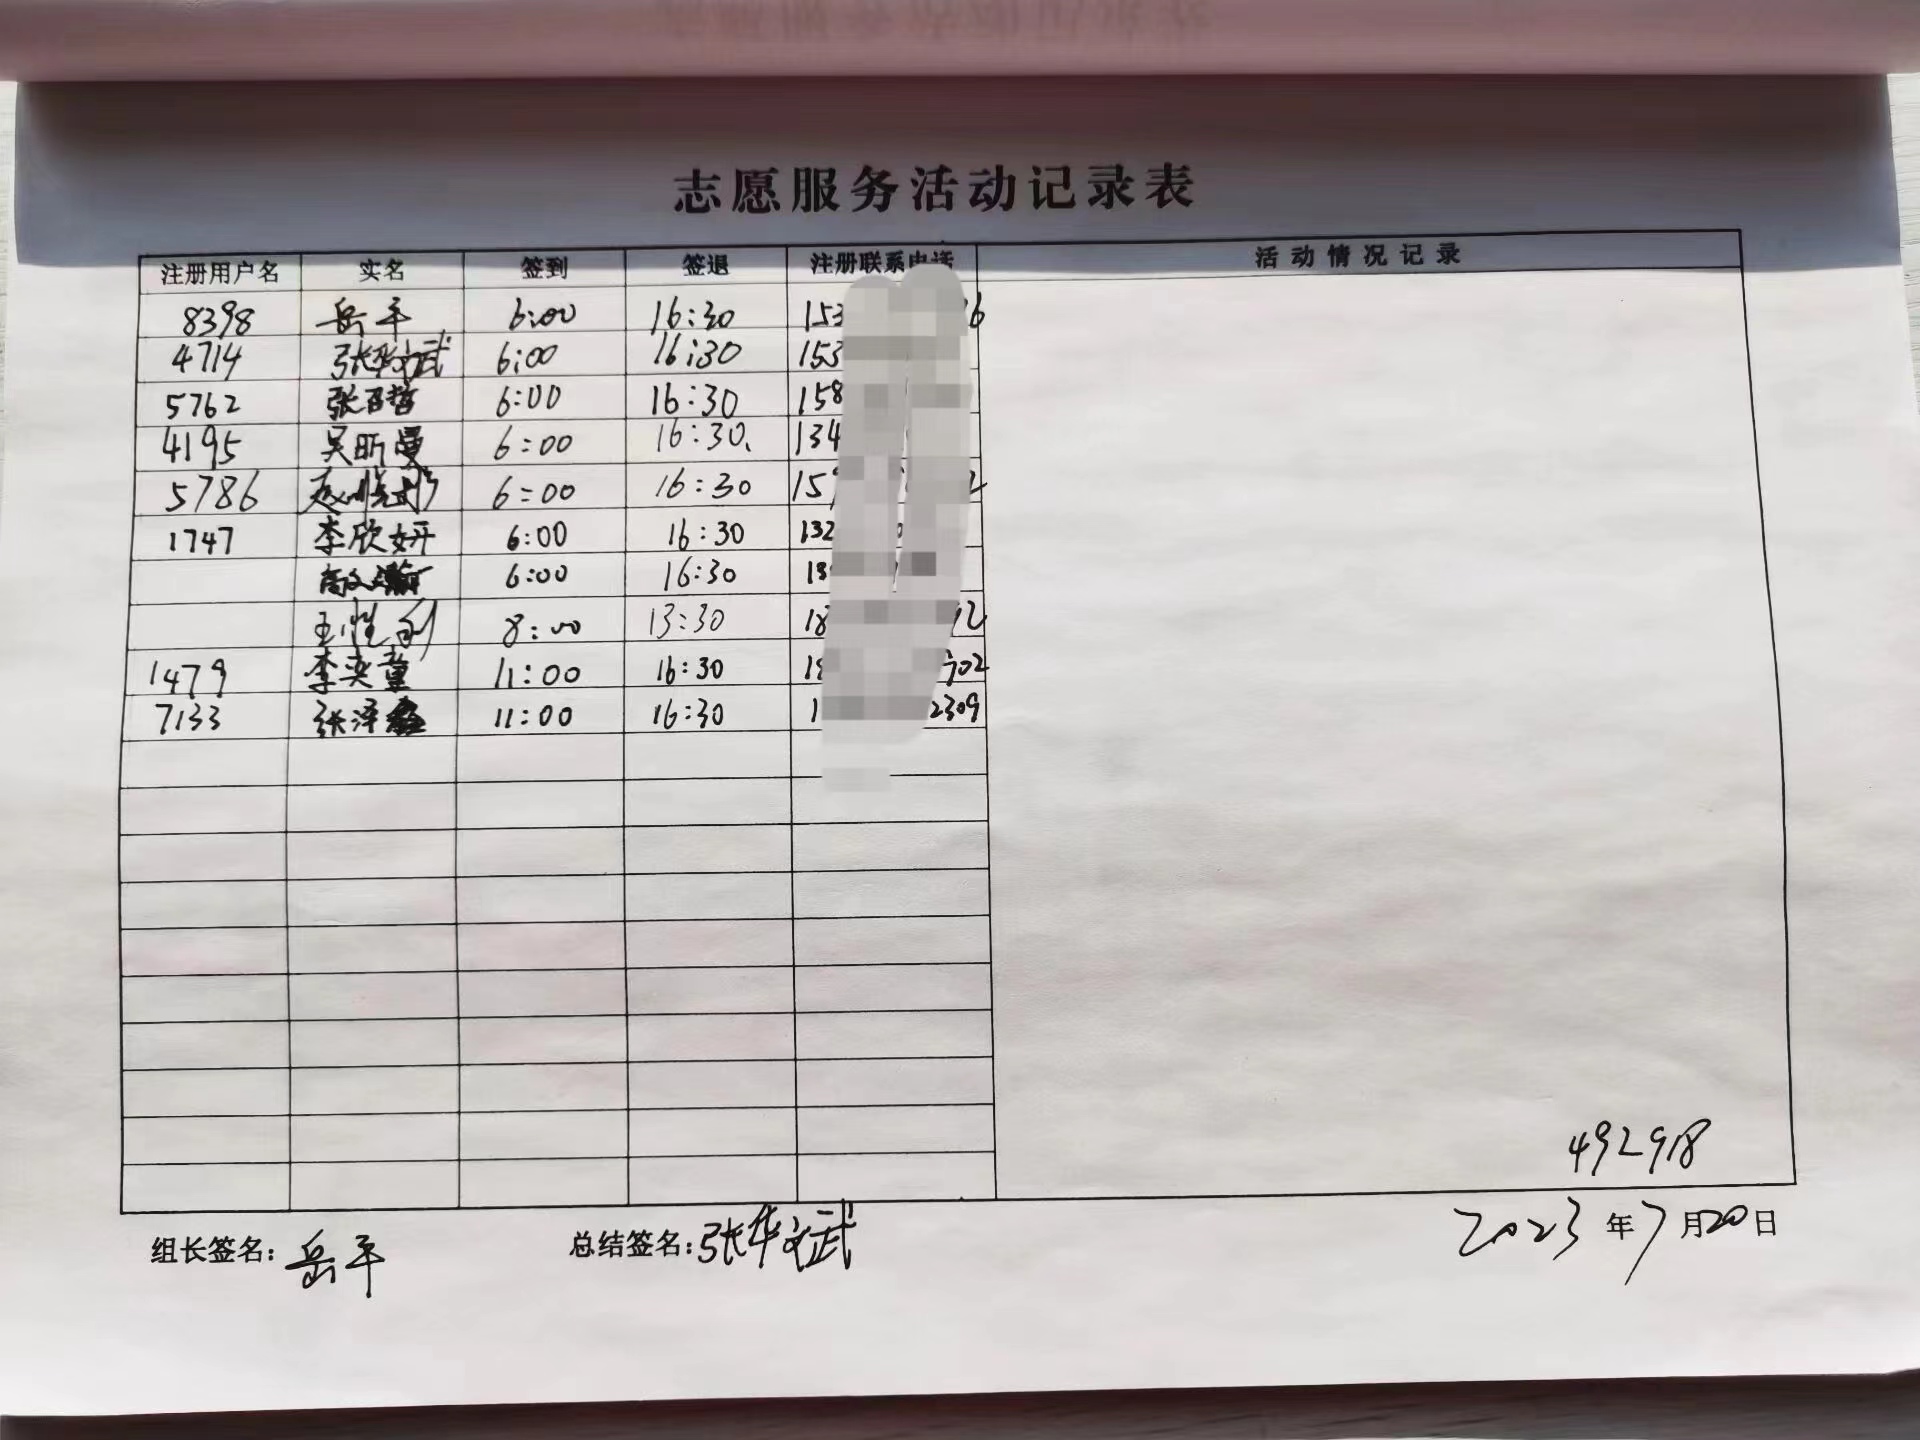 志愿服务活动记录表
注册用户名 实名 签到 签退 注册联系电话 活动情况记录
8398 岳平 6:00 16:30 153 6
4714 张华文武 6:00 16:30 153
5762 张百哲 6:00 16:30 158
4195 吴昕曼 6:00 16:30 134
5786 6:00 16:30 15 2
1747 李欣妍 6:00 16:30 132
高文瀚 6:00 16:30 1
王性利 8:00 13:30 18 12
1479 李奕童 11:00 16:30 1 702
7133 张泽鑫 11:00 16:30 1 2309
492918
组长签名: 岳平 总结签名: 张华文武 2023年7月20日